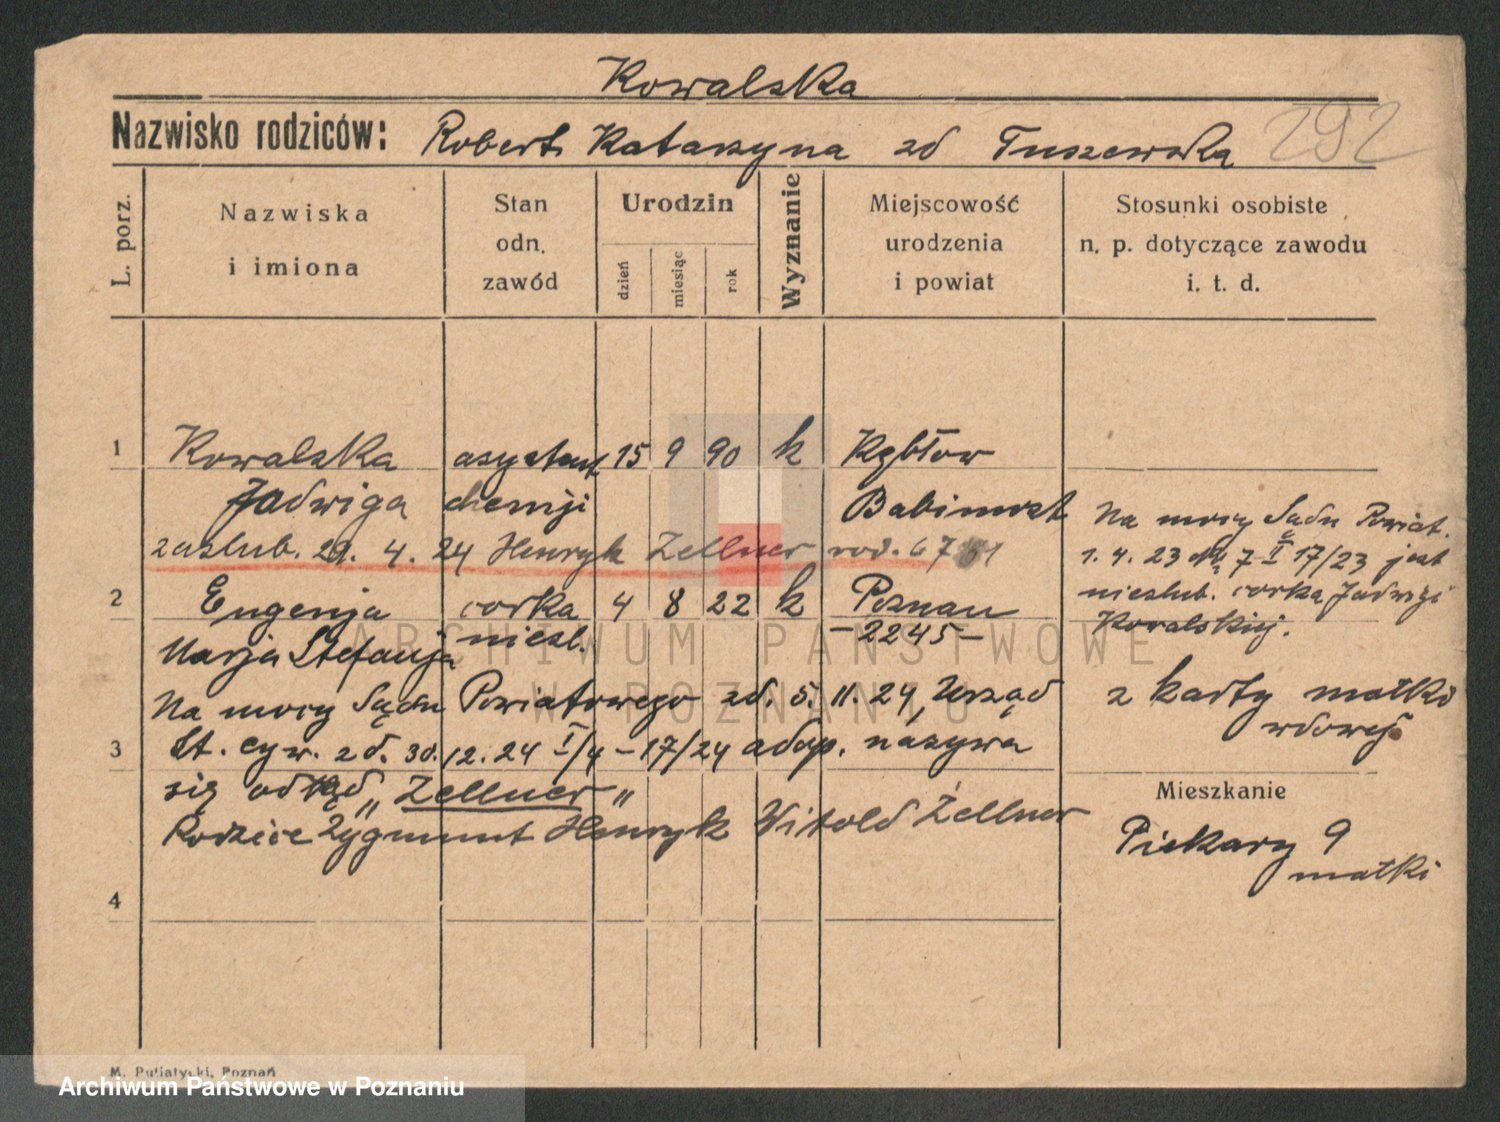 Kowalska
Nazwisko rodziców: Robert Katarzyna zd Tuszewska 292
L. porz.
Nazwiska
i imiona
Stan
odn.
zawód
Urodzin
dzień
miesiąc
rok
Wyznanie
Miejscowość
urodzenia
i powiat
Stosunki osobiste
n. p. dotyczące zawodu
i. t. d.
1 Kowalska asystent 15 9 90 k Kębłow
Jadwiga chemji Babimost
zaslub. 29. 4. 24 Henryk Zellner rod. 67
Na mocy Sądu Powiat.
1. 4. 23 7 I 17/23 jest
nieslub. corką Jadwigi
Kowalskiej.
2 Eugenja corka 4 8 22 k Poznan
Marja Stefanja niesl. -2245-
z karty matki
wdowej
Na mocy Sądu Powiatowego zd. 5. 11. 24, Urząd
3 St. cyw. zd. 30. 12. 24 I/4 - 17/24 adop. nazywa
się odtąd „Zellner"
Rodzice Zygmunt Henryk Witold Zellner
Mieszkanie
Piekary 9
matki
4
M. Putiatycki, Poznań
ARCHIWUM PAŃSTWOWE
W POZNANIU
Archiwum Państwowe w Poznaniu